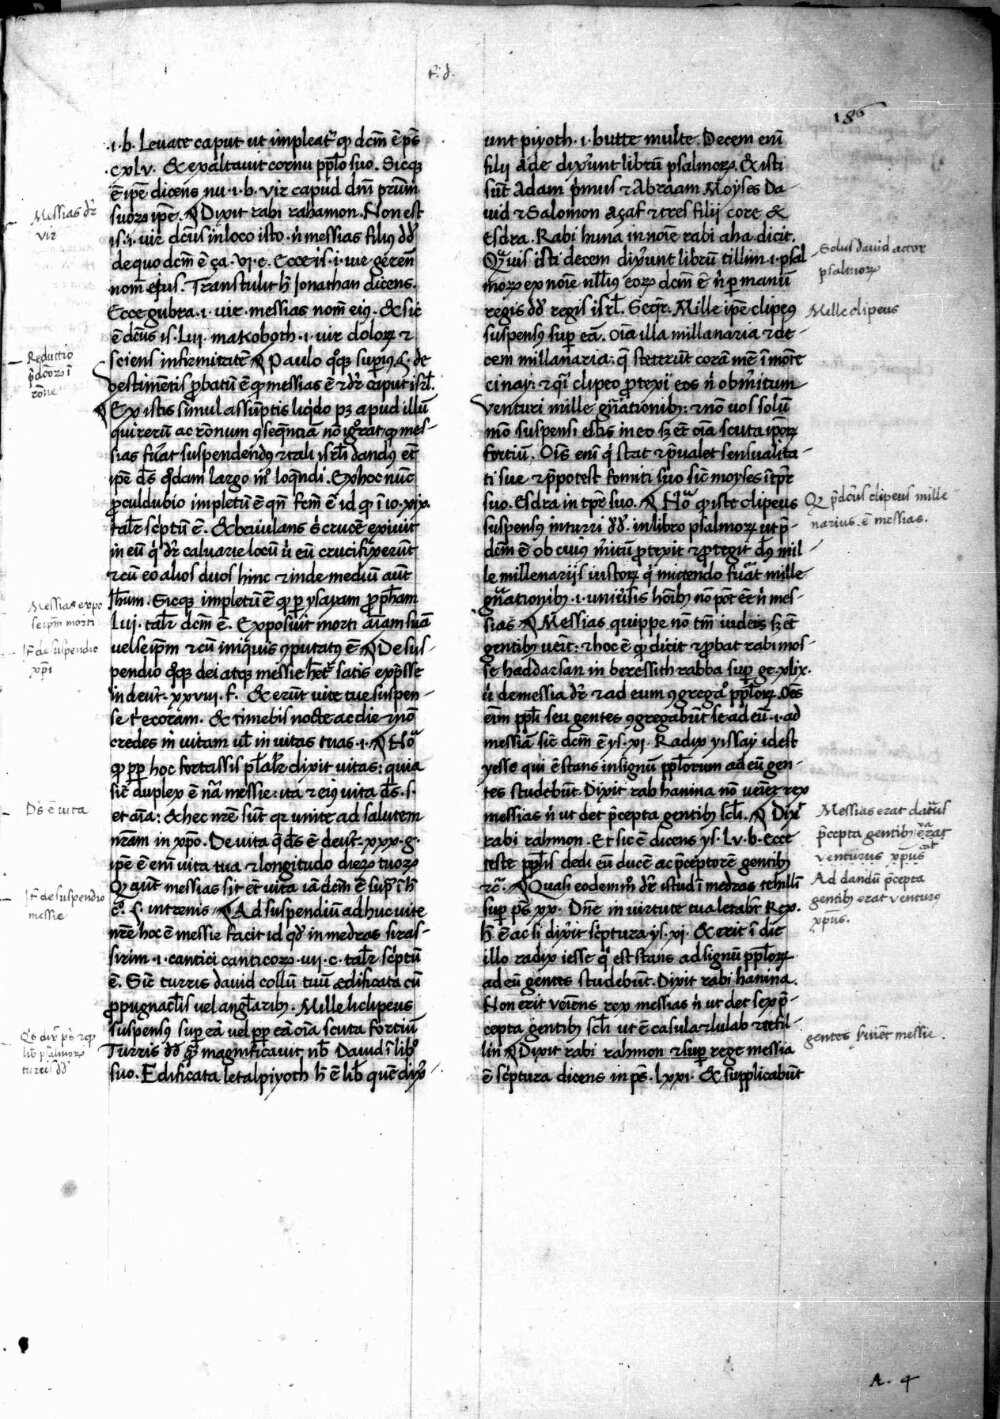 f. d.
186
.i.b. Levate caput ut impleat² q̃ dcm̃ ẽ p̃s
.cxlv. & exaltavit cornu pp̃lo suo. Sicq;
ẽ ip̃e dicens nu.i.b. vir capud dm̃ primũ
suorꝝ ip̃e. Dixit rabi rahamon. Non est
is.i. vir dc̃us in loco isto. ñ messias filius dd̃
de quo dcm̃ ẽ ça. vi. c. Ecce is.i. vir germen
nom̃ ejus. Transtulit h̃ Jonathan dicens.
Ecce gubra.i. vir. messias nom̃ eiꝰ. & sic
ẽ dc̃us is. Lvi. makoboth.i. vir dolorꝝ &
sciens infirmitatẽ Paulo q̃q; superiꝰ §. de
vestimẽtis probatũ ẽ q̃ messias ẽ & dr̃ caput isrl̃.
Ex istis simul assũptis liq̃do pꝫ apud illũ
qui rerum ac rõnum ꝯseq̃ntiã nõ ignorat q̃ mes-
sias fuat suspendendꝰ & tali isrl̃i dandus ẽt
ip̃e d̃s q̃dam largo mõ loq̃ndi. Ex hoc nũc
proculdubio impletũ ẽ qñ fcm̃ ẽ id q̃ iõ.xix.
tal̃r sc̃ptũ ẽ. & baiulans s̃ crucẽ exivit
in eũ q̃ dr̃ calvarie locũ ũ eũ crucifixerũt
& cũ eo alios duos hinc & inde mediũ aũt
Jhũm. Sicq; impletũ ẽ q̃ p̱ ysayam prop̃ham
Lvi. tal̃r dcm̃ ẽ. Exposuit morti aĩam suã
velse ip̃m & cũ iniquis ꝯputatꝰ ẽ De sus-
pendio q̃q; dei atq; messie h̃etr̃ satis exp̃sse
in deut̃. xxviii. f. & erũt vite tue suspen-
se t̃ecoram. & timebis nocte ac die & nõ
credes in vitam ul̃ in vitas tuas.i. Nõ
q̃ pp̱ hoc fortassis pl̃al̃r dixit vitas: quia
sic̃ duplex ẽ nã messie: ita & eiꝰ vita d̃s.s.
et aĩa: & hec nr̃e sũt qr̃ unite ad salutem
nr̃am in xp̃o. De vita q̃ d̃s ẽ deut̃. xxx. g.
ip̃e ẽ enĩ vita tua & longitudo dierꝝ tuorꝝ
Q̃ aũt messias sit ẽt vita iã dcm̃ ẽ sup̃ ĩ h̃
c̃. §. in trenis Ad suspendiũ adhuc vite
nr̃e hoc ẽ messie facit id q̃d in medras siras-
sirim.i. cantici canticorꝝ. iiii. c. tal̃r sc̃ptũ
ẽ. Sic̃ turris david collũ tuũ ædificata cũ
ꝓpugnacl̃is vel anglarib;. Mille hclipeus
suspensꝰ sup̱ eã vel pp̱ eã oĩa scuta fortiũ
Turris dd̃ q̃m magnificavit nb̃ David ĩ libro
suo. Edificata letalpiyoth h̃ ẽ lib̃ quẽ dixe-
runt piyoth.i. butte multe. Decem enĩ
filii ade dixerunt librũ psalmorꝝ. & isti
sũt Adam primus & Abraam Moyses Da-
vid & Salomon açaf & tres filii core &
Esdra. Rabi huna in noĩe rabi aha dicit.
Q̃vis isti decem dixerunt librũ tillim.i. psal-
morꝝ ex noĩe nll̃iꝰ eorꝝ dcm̃ ẽ ñ p̱ manũ
regis dd̃ regis isrl̃. Seq̃r. Mille ip̃e clipeꝰ
suspensꝰ sup̱ eã. Oĩa illa millanaria & de-
cem millanaria: q̃ steterũt corã me ĩ mõte
cinay: & q̃si clipeo protexi eos ñ ob mĩtum
venturi mille gñationib;: & nõ vos solũ-
mõ suspensi estis in eo sꝫ ẽt oĩa scuta ip̃orꝝ
fortiũ. Ois̃ enĩ q̃ stat & p̃valet sensualita-
ti sue & p̃potest fomiti suo sic̃ moyses ĩ tp̃r̃
suo. Esdra in tp̃re suo. Nõ q̃ iste clipeus
suspensꝰ in turri dd̃. in libro psalmorꝝ ut p̃-
dcm̃ ẽ ob cuius m̃itũ protexit & protegit dñs mil-
le millenariis iustorꝝ q̃ mictendo fuãt mille
gñationib;.i. uniṽsis hõib; nõ põt ẽẽ ñ mes-
sias Messias quippe nõ tm̃ iudeis sꝫ ẽt
gentib; veñit: & hoc ẽ q̃ dicit & probat rabi mos-
se haddarsan in beressith rabba sup̱ ge. xlix.
ũ de messia dr̃ & ad eum ꝯgregãꝰ pp̃lorꝝ. Oẽs
eĩm pp̃li seu gentes ꝯgregabũt se ad eũ.i. ad
messiã sic̃ dcm̃ ẽ ys. xi. Radix yissay id est
yesse qui ẽ stans in signũ pp̃lorum ad eũ gen-
tes studebũt. Dixit rab hanina nõ veñet rex
messias ñ ut det p̃cepta gentib; scl̃i. Dixit
rabi rahmon. Et sic ẽ dicens ys. Lv. b. Ecce
teste pp̃lis dedi eũ ducẽ ac p̃ceptorẽ gentib;
&c̃. Quasi eodem mõ dr̃ istud ĩ medras tehillĩ
sup̱ p̃s xx. Dñe in virtute tua letabit² Rex.
h̃ ẽ ac si dixit sc̃ptura ys. xi. & erit ĩ die
illo radix iesse q̃ est stans ad signũ pp̃lorꝝ
ad eũ gentes studebũt. Dixit rabi hanina.
Non erit veniens rex messias ñ ut det sex p̃-
cepta gentib; scl̃i ut ẽ casula & lulab & tefil-
lin Dixit rabi rahmon & sup̱ rege messia
ẽ sc̃ptura dicens in p̃s. lxxi. & supplicabũt
Messias dr̃
vir
Reductio
p̃dcõrꝝ ĩ
rõne
Messias expo
se ip̃m morti
It̃ de suspendio
xp̃i
D̃s ẽ vita
It̃ de suspendio
messie
Q̃o dix̃ p̃s req̃
lib̃ psalmorꝝ
turris dd̃
Solus david actor
psalmorꝝ
Mille clipeus
Q̃ p̃dc̃us clipeus mille
narius ẽ messias.
Messias erat daturus
p̃cepta gentib; & erat
venturus xp̃ũs
Ad dandũ p̃cepta
gentib; erat venturꝰ
xp̃us.
gentes servient messie.
A. 4